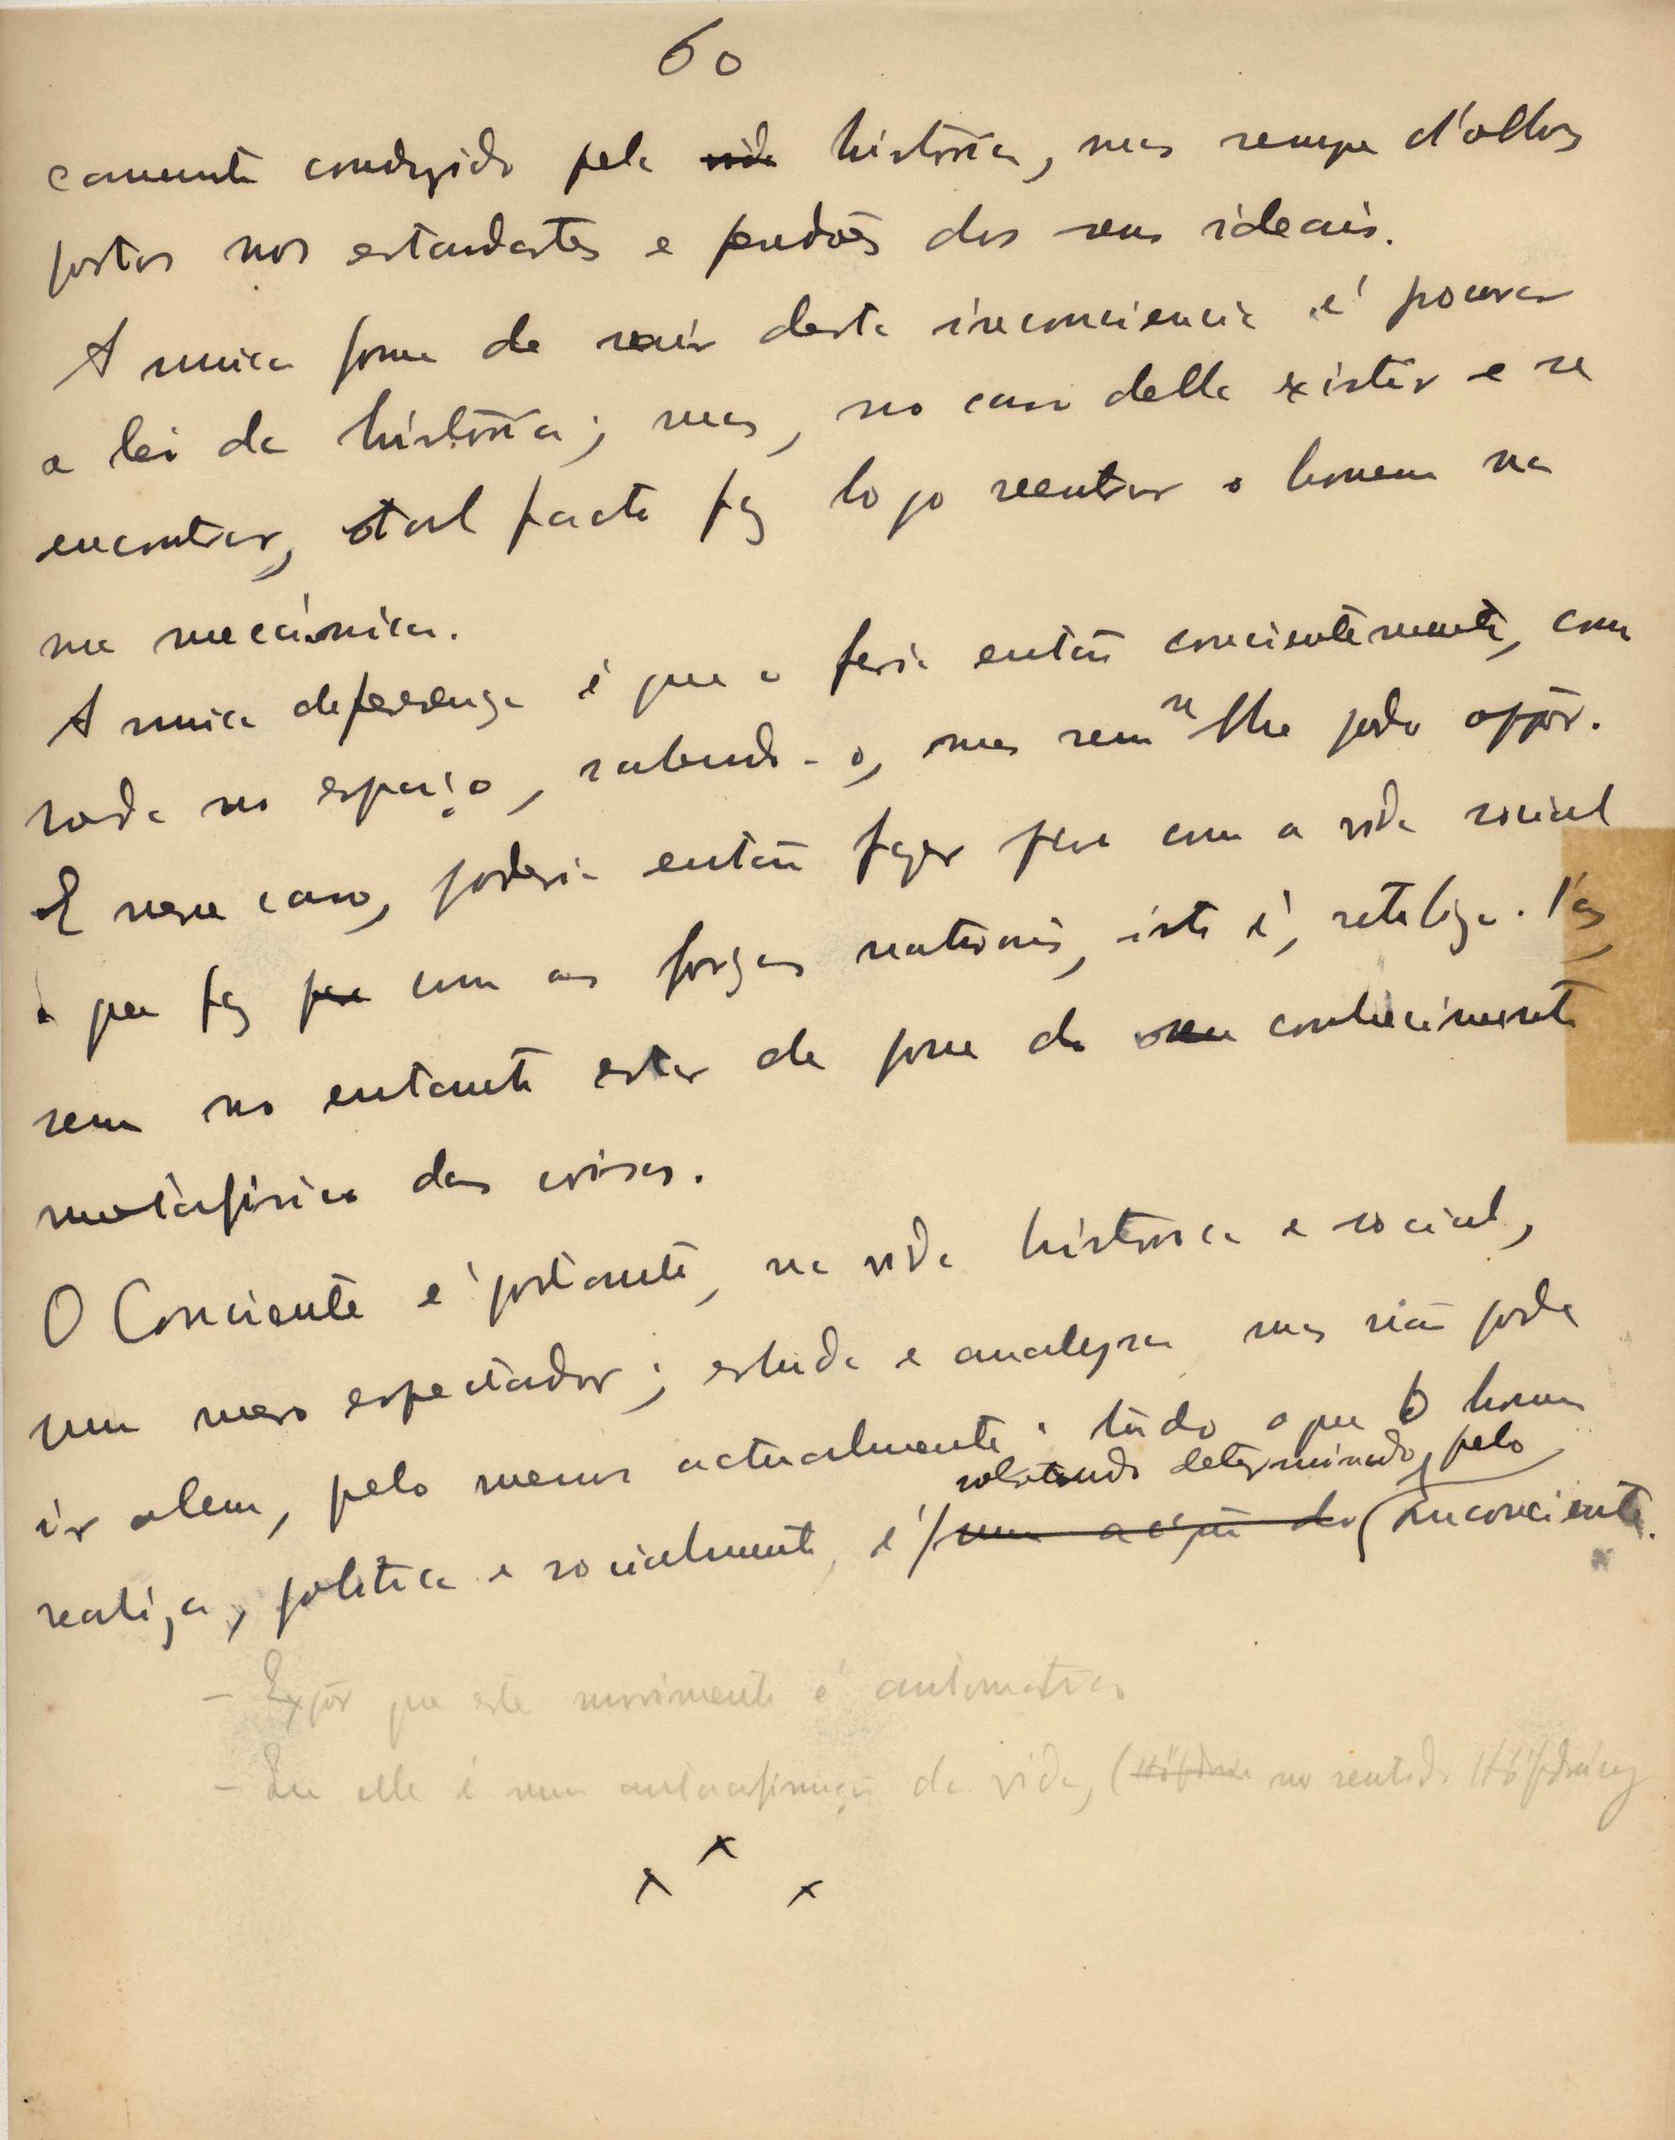 60
camente conduzido pela vida historia, mas sempre d'olhos
postos nos estandartes e pendões dos seus ideais.
A unica forma de sair desta inconciencia é procurar
a lei da historia; mas, no caso della existir e se
encontrar, tal facto faz logo reentrar o homem na
sua mecánica.
A unica deferença é que o faria então concientemente, como
roda no espaço, sabendo-o, mas sem se lhe poder oppôr.
E nesse caso, poderia então fazer com a vida social
o que faz com as forças naturais, isto é, utiliza-las,
sem no entanto estar de posse do seu conhecimento
metafisico das coisas.
O Conciente é portanto, na vida historica e social,
um mero espectador; estuda e analysa mas não pode
ir alem, pelo menos actualmente: tudo o que o homem
sobretudo determinado, pelo
realiza, politica e socialmente, é uma acção do Inconciente.
- Expôr que este movimento é automatico
- Que elle é uma autoafirmação da vida, (no sentido
x x x